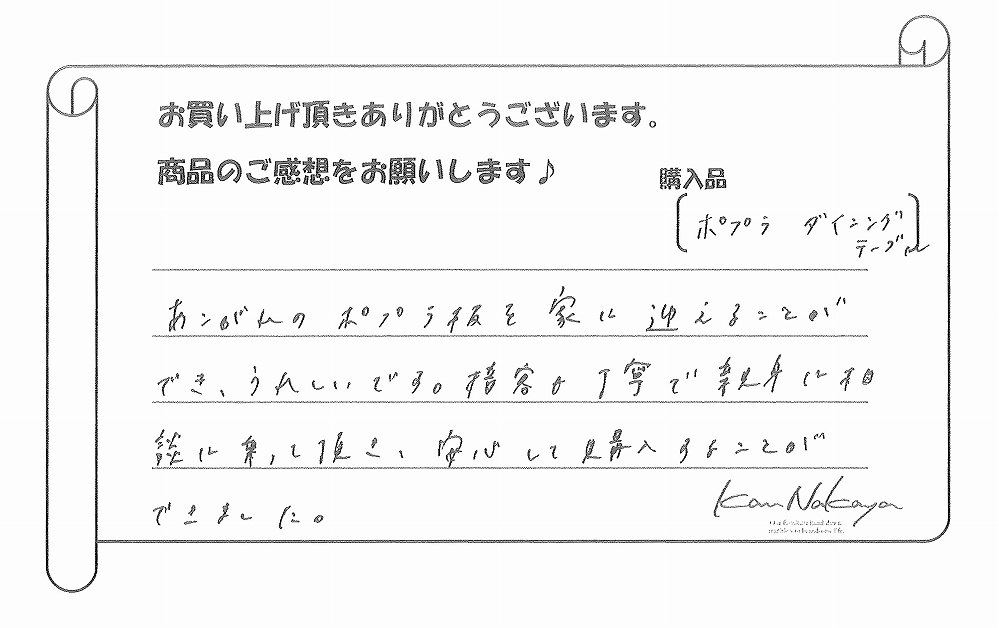 お買い上げ頂きありがとうございます。
商品のご感想をお願いします♪
購入品
ポプラ ダイニング
テーブル
あこがれの ポプラ板を 家に 迎えることが
でき、うれしいです。接客も 丁寧で 親身に相
談に乗って頂き、安心して購入することが
できました。
Kan Nakaya